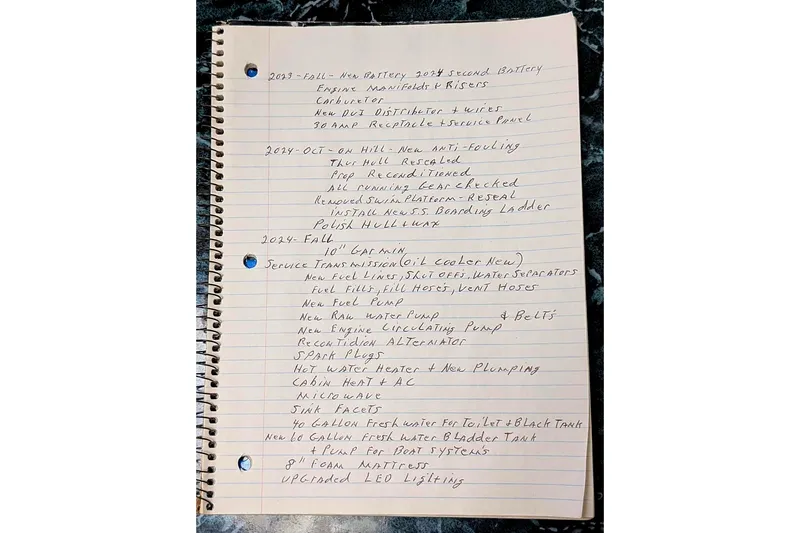 2023-FALL-New Battery 2024 second Battery
Engine Manifolds & Risers
Carburetor
New DUI Distributor + wires
30 Amp Recptacle + Service Panel
2024-Oct-on Hill-New Anti-Fouling
Thur Hull Resealed
Prop Reconditioned
All running Gear checked
Removed Swim Platform-Reseal
Install New S.S. Boarding Ladder
Polish Hull + wax
2024-Fall
10" Garmin
Service Transmission (oil cooler New)
New Fuel Lines, Shut offs, Water Separators
Fuel Fills, Fill Hoses, Vent Hoses
New Fuel Pump
New Raw Water Pump & Belts
New Engine Circulating Pump
Recontidion Alternator
Spark Plugs
Hot Water Heater + New Plumping
Cabin Heat + AC
Microwave
Sink Facets
40 Gallon Fresh water For Toilet + Black Tank
New 60 Gallon Fresh Water Bladder Tank
+ Pump For Boat Systems
8" Foam Mattress
Upgraded LED Lighting